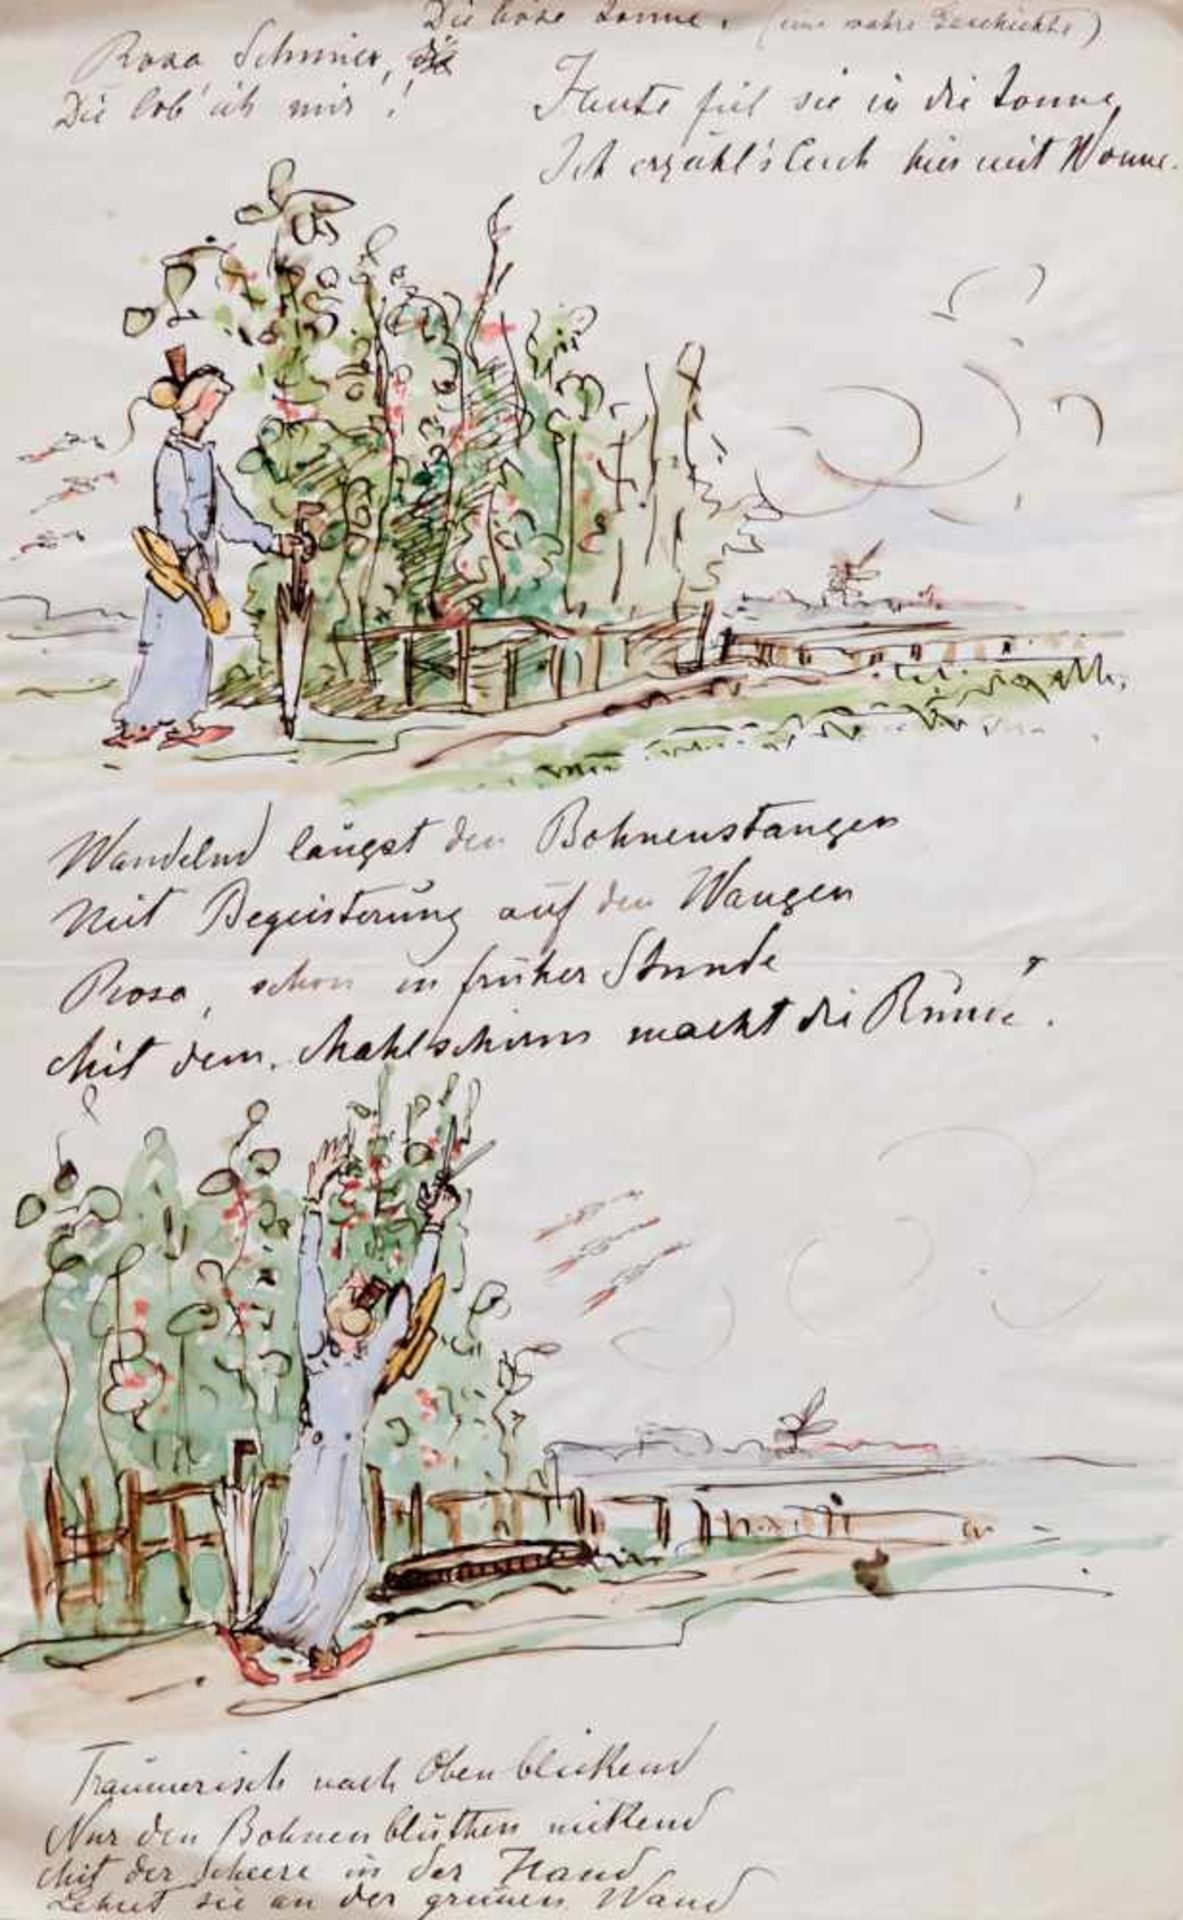 Die böse Tonne. (eine wahre Geschichte)
Rosa Schmier, die
Die lob' ich mir!
Heute fiel sie in die Tonne
Ich erzähl's Euch hier mit Wonne.
Wandelnd längst den Bohnenstangen
Mit Begeisterung auf den Wangen
Rosa, schon in früher Stunde
Mit dem Mahlschirm macht die Runde.
Träumerisch nach Oben blickend
Nur den Bohnenblüthen nickend
Mit der Scheere in der Hand
Lehnt sie an der grünen Wand